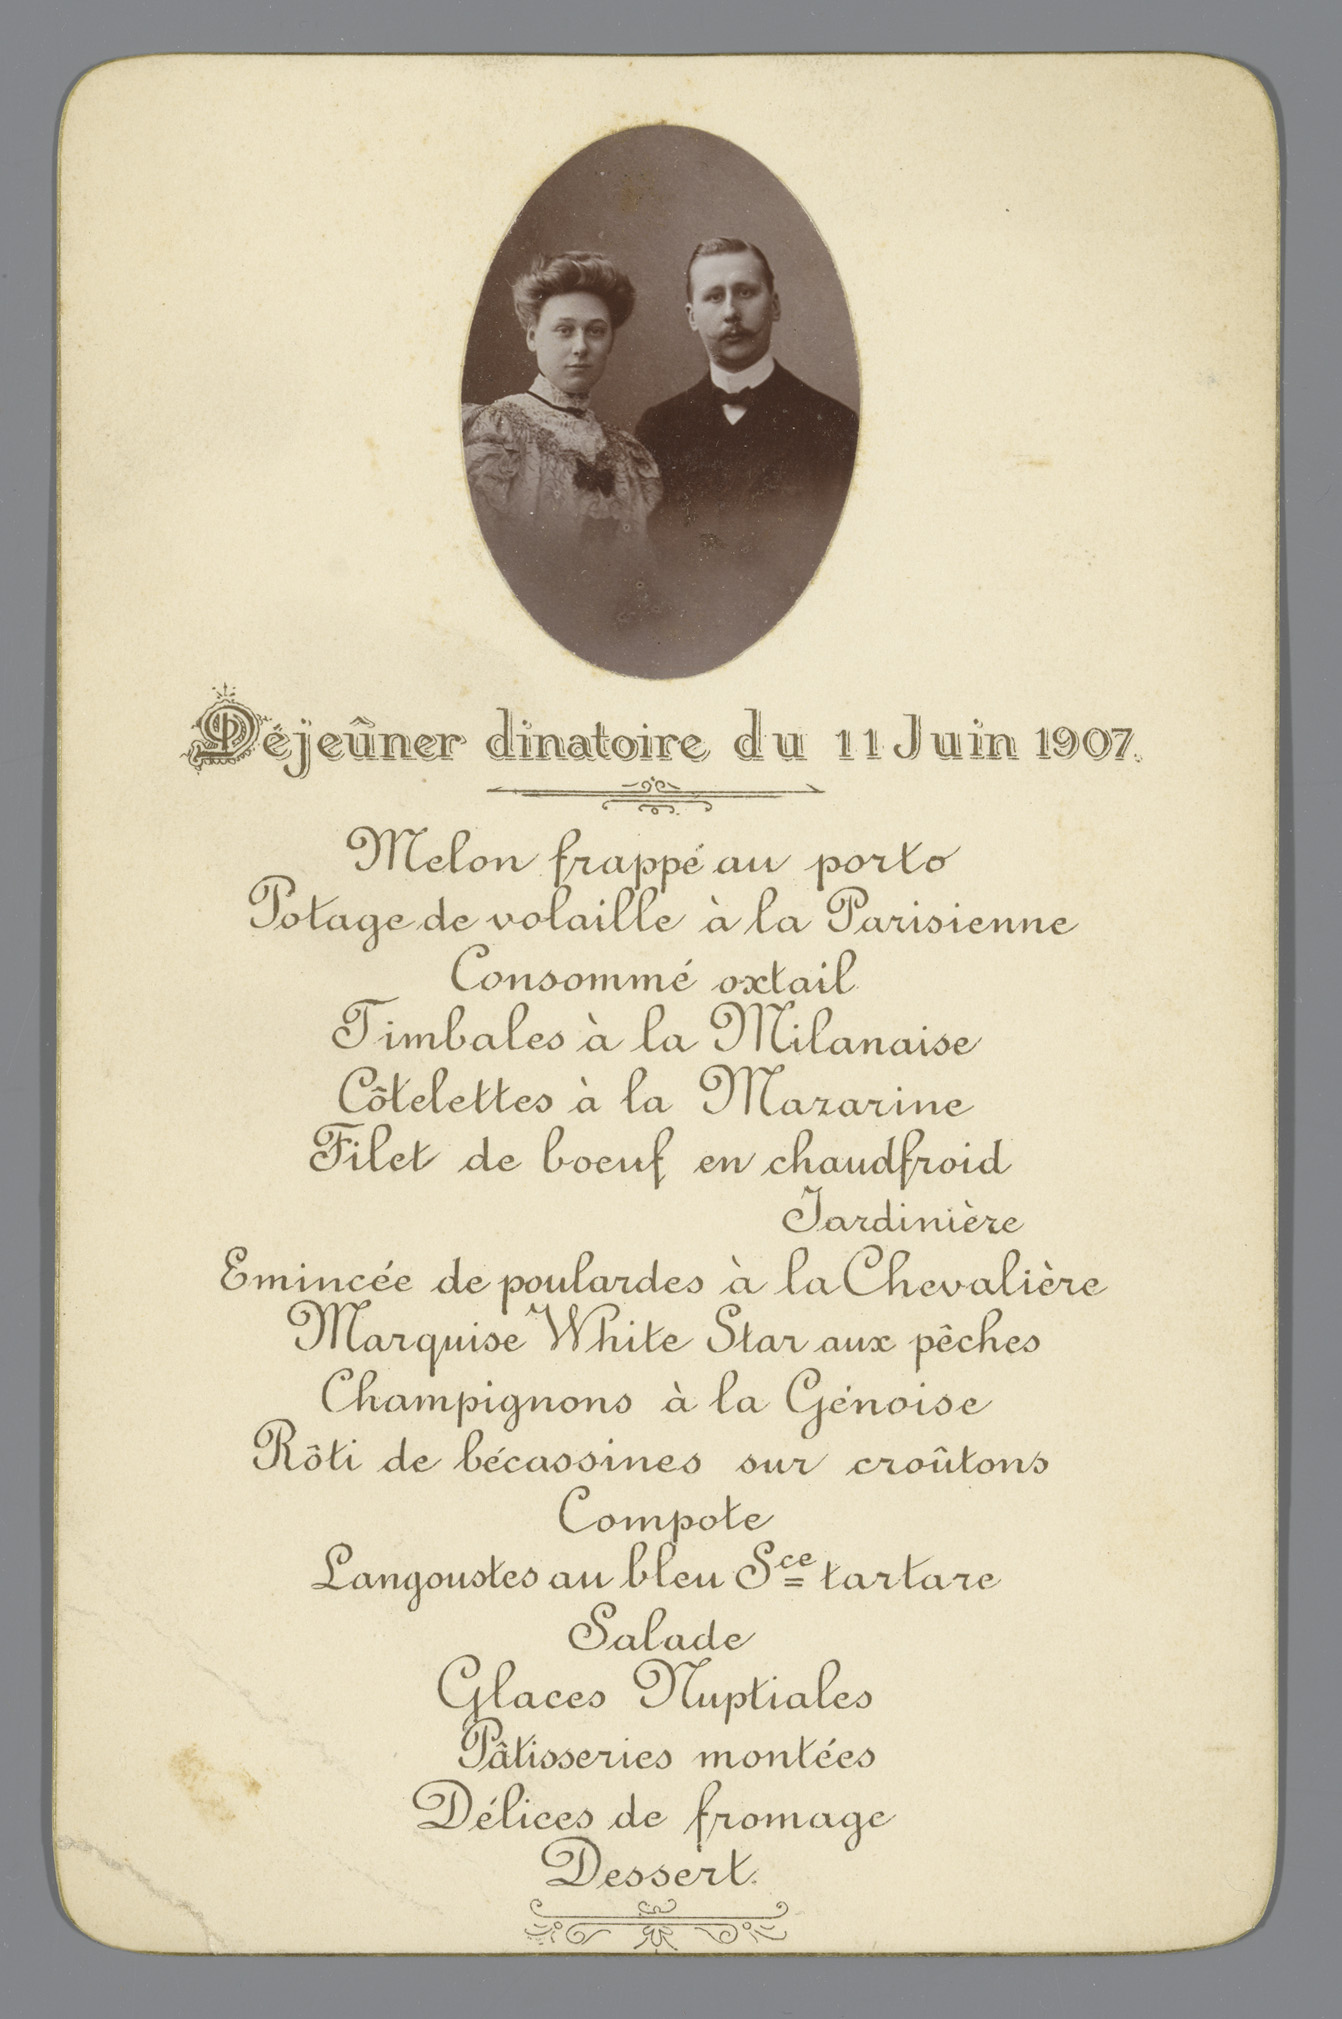 Déjeûner dinatoire du 11 Juin 1907.
Melon frappé au porto
Potage de volaille à la Parisienne
Consommé oxtail
Timbales à la Milanaise
Côtelettes à la Mazarine
Filet de boeuf en chaudfroid
Jardinière
Emincée de poulardes à la Chevalière
Marquise White Star aux pêches
Champignons à la Génoise
Rôti de bécassines sur croûtons
Compote
Langoustes au bleu Sce tartare
Salade
Glaces Nuptiales
Pâtisseries montées
Délices de fromage
Dessert.